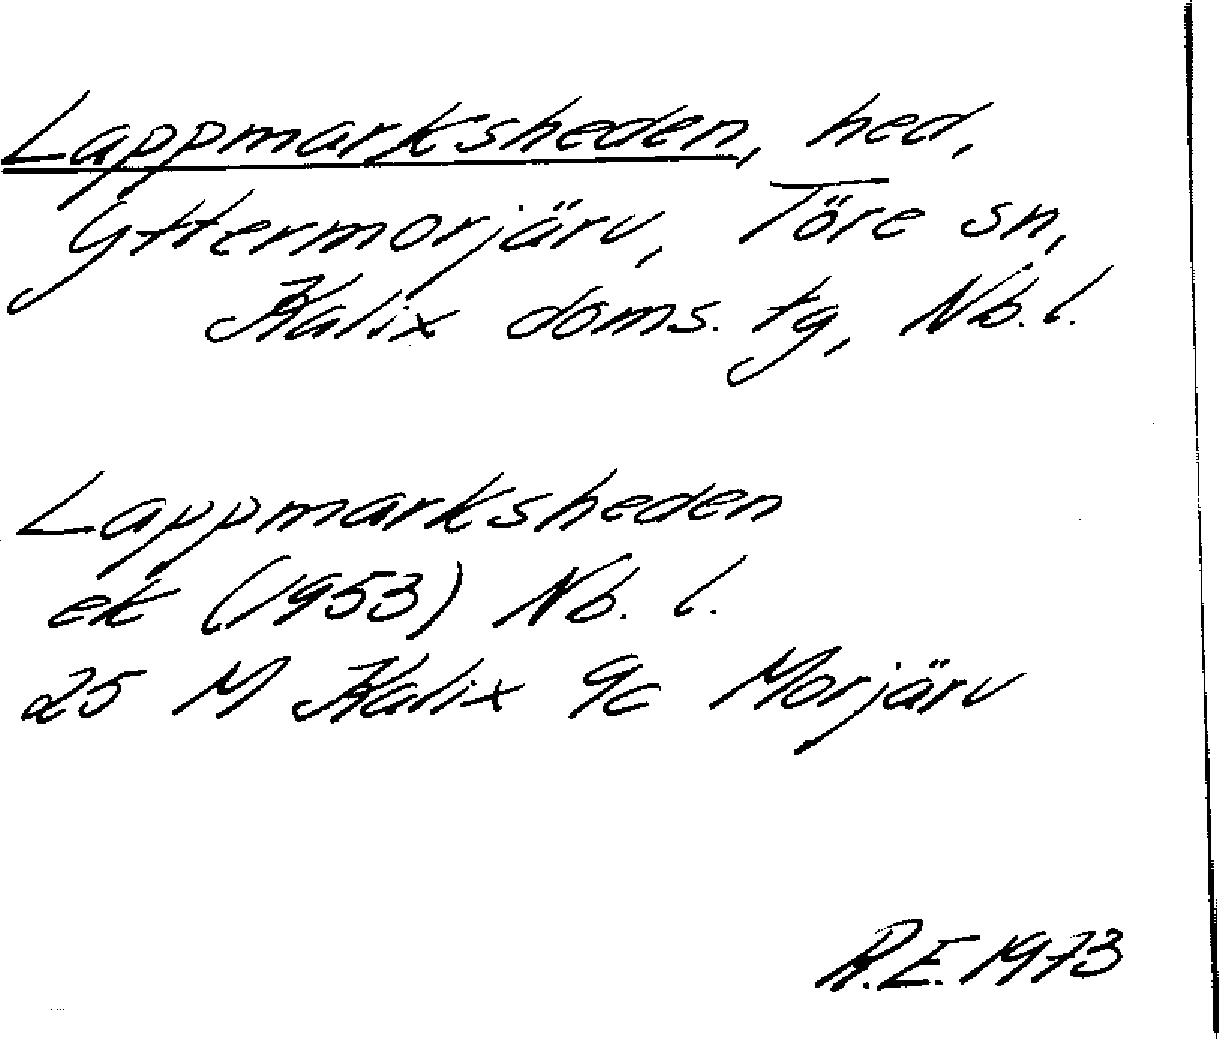 Lappmarksheden, hed,
Yttermorjärv, Töre sn,
Kalix doms. tg, Nb. l.
Lappmarksheden
ek (1953) Nb. l.
25 M Kalix 9c Morjärv
R.E. 1973